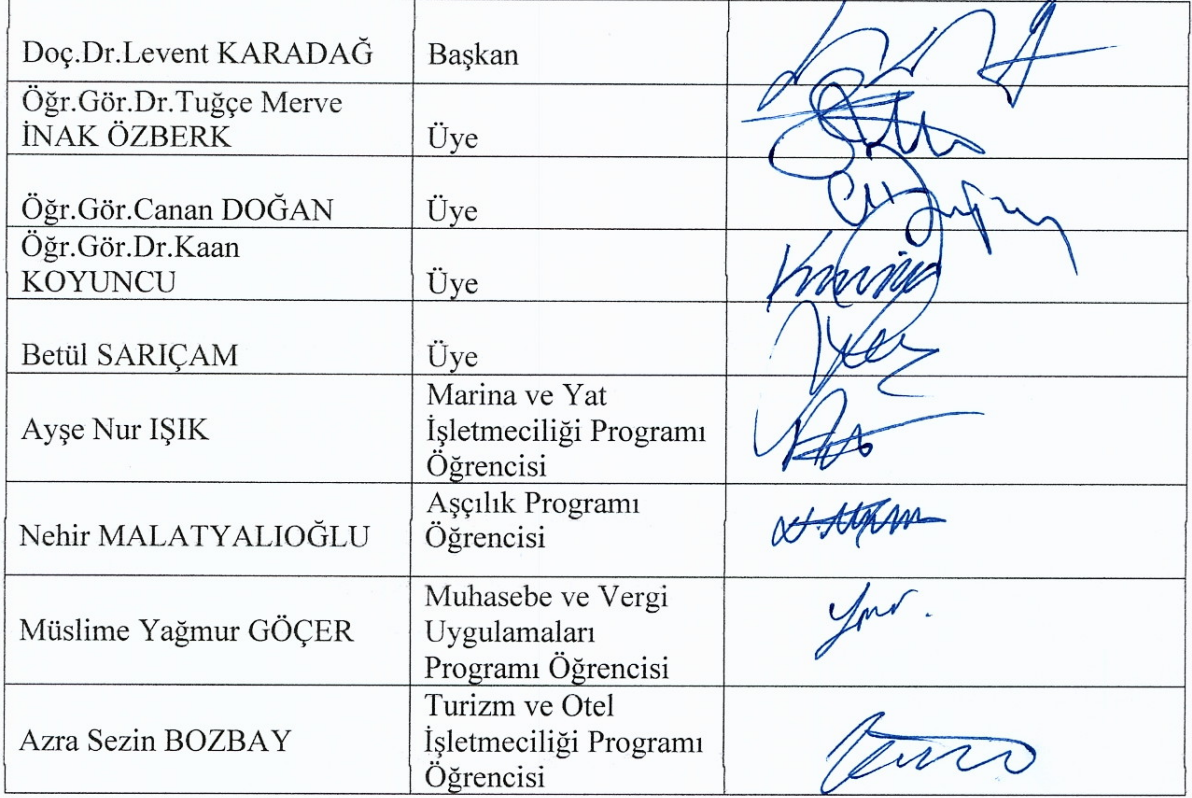 Doç.Dr.Levent KARADAĞ Başkan
Öğr.Gör.Dr.Tuğçe Merve
İNAK ÖZBERK Üye
Öğr.Gör.Canan DOĞAN Üye
Öğr.Gör.Dr.Kaan
KOYUNCU Üye
Betül SARIÇAM Üye
Ayşe Nur IŞIK
Marina ve Yat
İşletmeciliği Programı
Öğrencisi
Nehir MALATYALIOĞLU
Aşçılık Programı
Öğrencisi
Müslime Yağmur GÖÇER
Muhasebe ve Vergi
Uygulamaları
Programı Öğrencisi
Azra Sezin BOZBAY
Turizm ve Otel
İşletmeciliği Programı
Öğrencisi